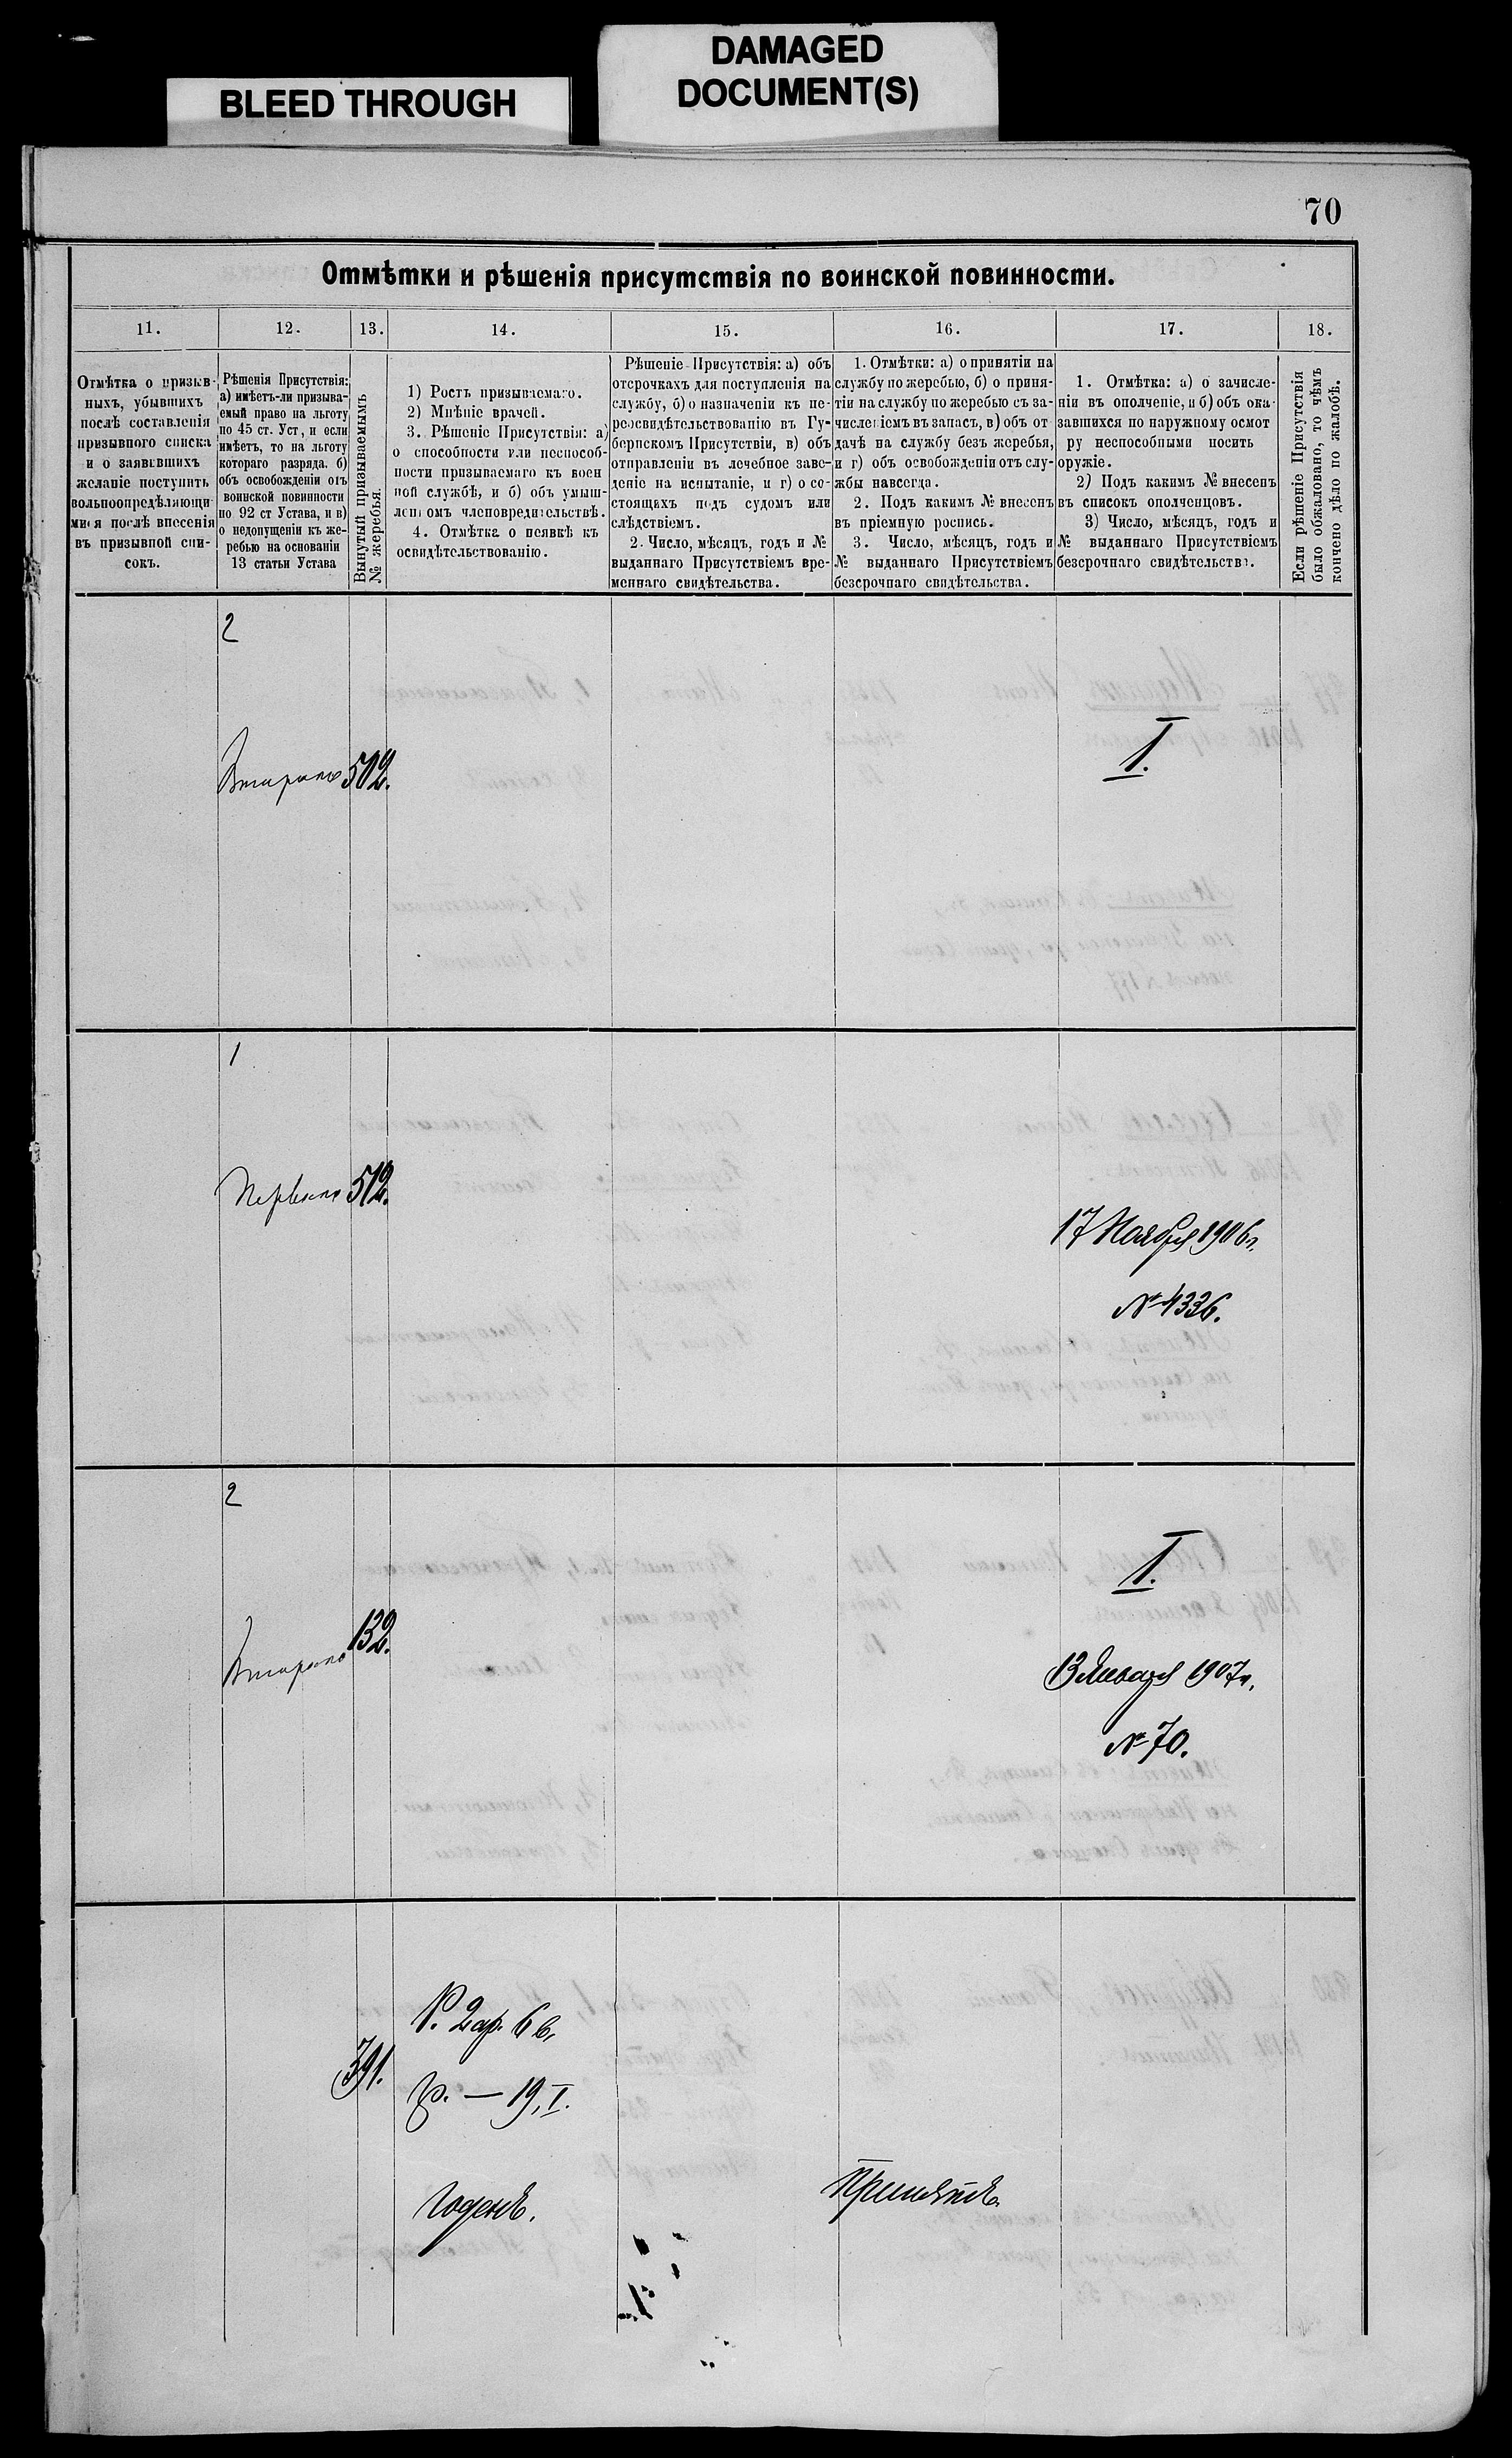 BLEED THROUGH
DAMAGED
DOCUMENT(S)
70
Отмѣтки и рѣшенія присутствія по воинской повинности.
11.
12.
13.
14.
15.
16.
17.
18.
Отмѣтка о призыв-
ныхъ, убывшихъ
послѣ составленія
призывного списка
и о заявившихъ
желаніе поступить
вольноопредѣляющи-
мися послѣ внесенія
въ призывной спи-
сокъ.
Рѣшенія Присутствія:
а) имѣетъ-ли призыва-
емый право на льготу
по 45 ст. Уст, и если
имѣетъ, то на льготу
котораго разряда. б)
объ освобожденіи отъ
воинской повинности
по 92 ст Устава, и в)
о недопущеніи къ же-
ребью на основаніи
13 статьи Устава
Вынутый призываемымъ
№ жеребья.
1) Ростъ призываемаго.
2) Мнѣніе врачей.
3. Рѣшеніе Присутствія: а)
о способности или неспособ-
ности призываемаго къ воен
ной службѣ, и б) объ умыш-
леномъ членовредительствѣ.
4. Отмѣтка о неявкѣ къ
освидѣтельствованію.
Рѣшеніе Присутствія: а) объ
отсрочкахъ для поступленія на
службу, б) о назначеніи къ пе-
реосвидѣтельствованію въ Гу-
бернскомъ Присутствіи, в) объ
отправленіи въ лечебное заве-
деніе на испытаніе, и г) о со-
стоящихъ подъ судомъ или
слѣдствіемъ.
2. Число, мѣсяцъ, годъ и №
выданнаго Присутствіемъ вре-
меннаго свидѣтельства.
1. Отмѣтки: а) о принятіи на
службу по жеребью, б) о приня-
тіи на службу по жеребью съ за-
численіемъ въ запасъ, в) объ от
дачѣ на службу безъ жеребья,
и г) объ освобожденіи отъ слу-
жбы навсегда.
2. Подъ какимъ № внесенъ
въ пріемную роспись.
3. Число, мѣсяцъ, годъ и
№ выданнаго Присутствіемъ
безсрочнаго свидѣтельства.
1. Отмѣтка: а) о зачисле-
ніи въ ополченіе, и б) объ ока-
завшихся по наружному осмот
ру неспособными носить
оружіе.
2) Подъ какимъ № внесенъ
въ списокъ ополченцовъ.
3) Число, мѣсяцъ, годъ и
№ выданнаго Присутствіемъ
безсрочнаго свидѣтельства.
Если рѣшеніе Присутствія
было обжаловано, то чѣмъ
кончено дѣло по жалобѣ.
2
502.
I.
1
512.
17 Ноября 1906 г.
№ 4336.
2
132.
I.
13 Января 1907 г.
№ 70.
391.
Р. 2 ар. 6 в.
19, I.
Годенъ.
Принятъ